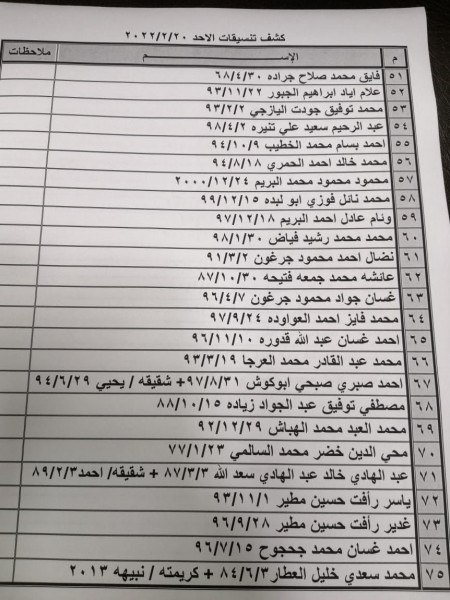 كشف تنسيقات الاحد ٢٠٢٢/٢/٢٠
م الإســـم ملاحظات
٥١ فايق محمد صلاح جراده ٦٨/٤/٣٠
٥٢ علام اياد ابراهيم الجبور ٩٣/١١/٢٢
٥٣ محمد توفيق جودت اليازجي ٩٣/٢/٢
٥٤ عبد الرحيم سعيد علي تنيره ٩٨/٤/٢
٥٥ احمد بسام محمد الخطيب ٩٤/١٠/٩
٥٦ محمد خالد احمد الحمري ٩٤/٨/١٨
٥٧ محمود محمود محمد البريم ٢٠٠٠/١٢/٢٤
٥٨ محمد نائل فوزي ابو لبده ٩٩/١٢/١٥
٥٩ وئام عادل احمد البريم ٩٧/١٢/١٨
٦٠ محمد محمد رشيد فياض ٩٨/١/٣٠
٦١ نضال احمد محمود جرغون ٩١/٣/٢
٦٢ عائشه محمد جمعه فتيحه ٨٧/١٠/٣٠
٦٣ غسان جواد محمود جرغون ٩٦/٤/٧
٦٤ محمد فايز احمد العواوده ٩٧/٩/٢٤
٦٥ احمد غسان عبد الله قدوره ٩٦/١١/١٠
٦٦ محمد عبد القادر محمد العرجا ٩٣/٣/١٩
٦٧ احمد صبري صبحي ابوكوش ٩٧/٨/٣١+ شقيقه / يحيي ٩٤/٦/٢٩
٦٨ مصطفي توفيق عبد الجواد زياده ٨٨/١٠/١٥
٦٩ محمد العبد محمد الهباش ٩٢/١٢/٢٩
٧٠ محي الدين خضر محمد السالمي ٧٧/١/٢٣
٧١ عبد الهادي خالد عبد الهادي سعد الله ٨٧/٣/٣ + شقيقه/ احمد٨٩/٢/٣
٧٢ ياسر رأفت حسين مطير ٩٣/١١/١
٧٣ غدير رأفت حسين مطير ٩٦/٩/٢٨
٧٤ احمد غسان محمد جحجوح ٩٦/٧/١٥
٧٥ محمد سعدي خليل العطار٨٤/٦/٣ + كريمته / نبيهه ٢٠١٣